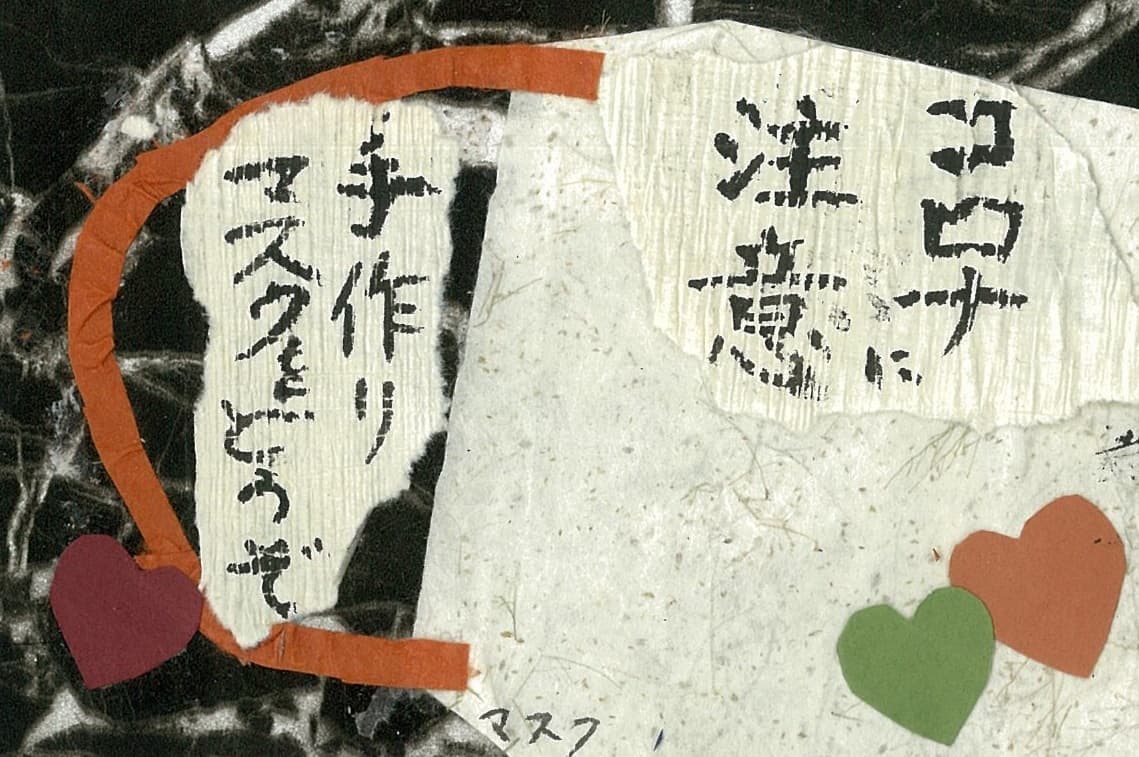 コロナに
注意
手作り
マスクをどうぞ
マスク